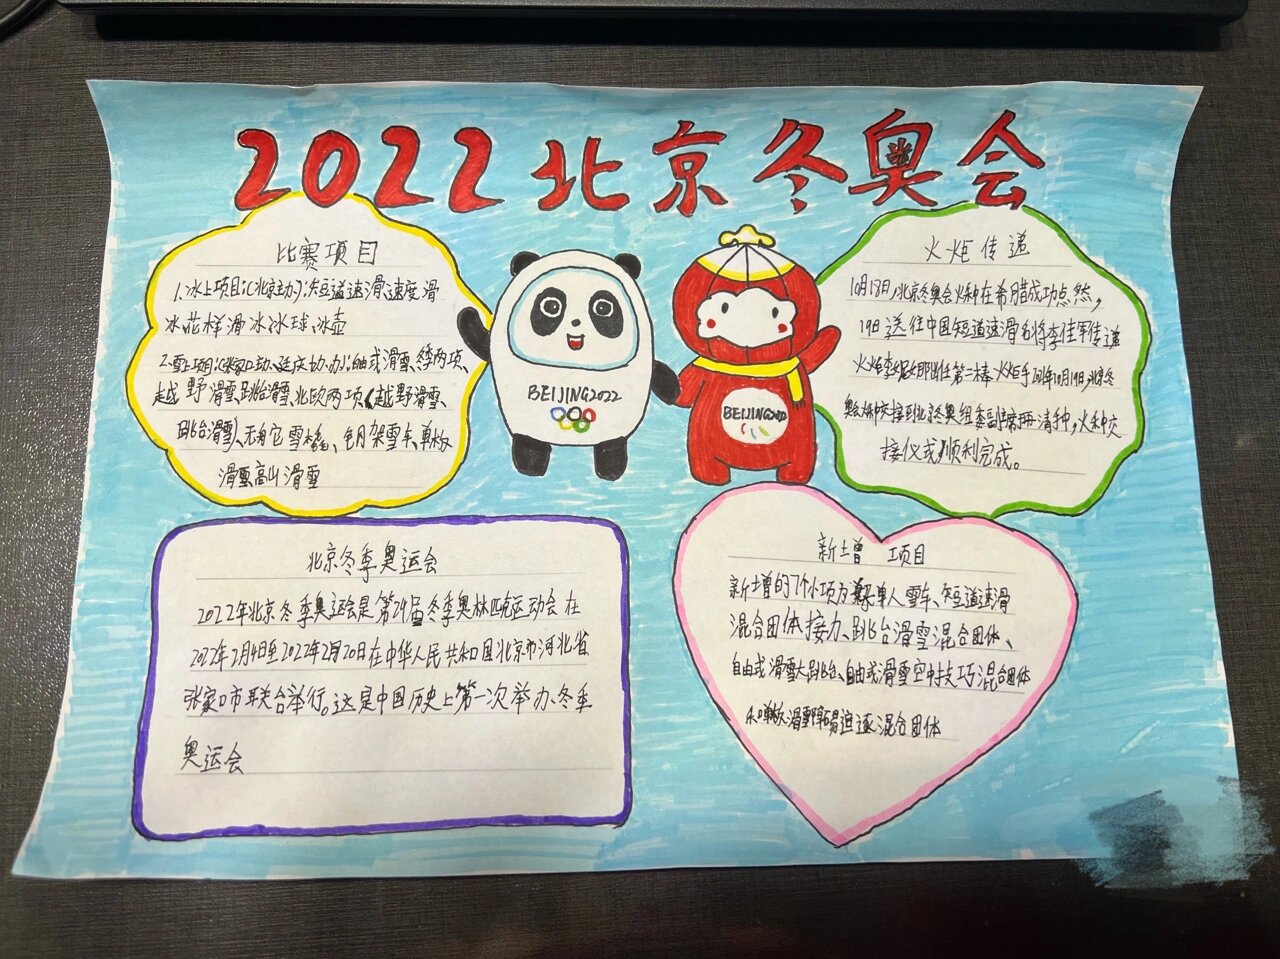 2022北京冬奥会
比赛项目
1.冰上项目:(北京主办):短道速滑、速度滑
冰、花样滑冰、冰球、冰壶
2.雪上项目:(张家口、延庆协办):自由式滑雪、冬季两项、
越野滑雪、跳台滑雪、北欧两项(越野滑雪、
跳台滑雪)、无舵雪橇、钢架雪车、单板
滑雪高山滑雪
BEIJING2022
BEIJING2022
火炬传递
10月18日,北京冬奥会火种在希腊成功点燃,
19日送往中国短道速滑名将李佳军传递
火炬 担任第二棒火炬手 10月19日,北京冬
奥会火种交接 北京冬奥组委副主席 清 ,火种交
接仪式顺利完成。
北京冬季奥运会
2022年北京冬季奥运会是第24届冬季奥林匹克运动会在
2022年2月4日至2022年2月20日在中华人民共和国北京市河北省
张家口市联合举行。这是中国历史上第一次举办冬季
奥运会
新增 项目
新增的7个小项为 单人雪车、短道速滑
混合团体接力、跳台滑雪混合团体、
自由式滑雪大跳台、自由式滑雪空中技巧混合团体
和单板滑雪障碍追逐混合团体